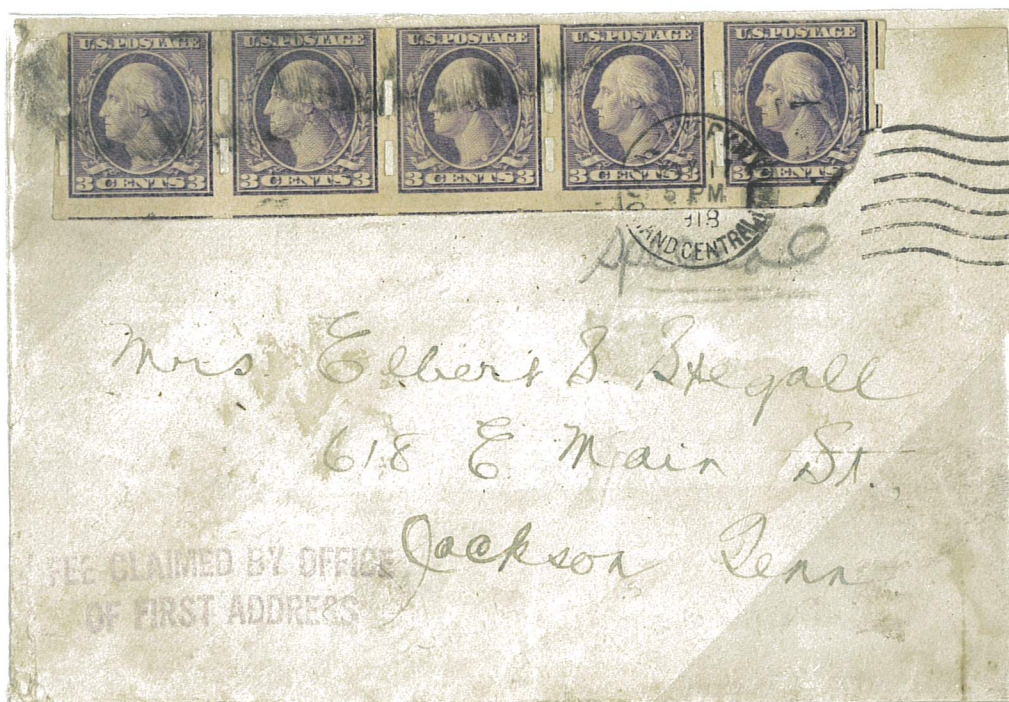 U.S.POSTAGE U.S.POSTAGE U.S.POSTAGE U.S.POSTAGE U.S.POSTAGE
3 CENTS 3 3 CENTS 3 3 CENTS 3 3 CENTS 3 3 CENTS 3
5 PM
918
AND CENTRAL
Special
Mrs. Elbert B. Stegall
618 E Main St.,
Jackson Tenn
FEE CLAIMED BY OFFICE
OF FIRST ADDRESS